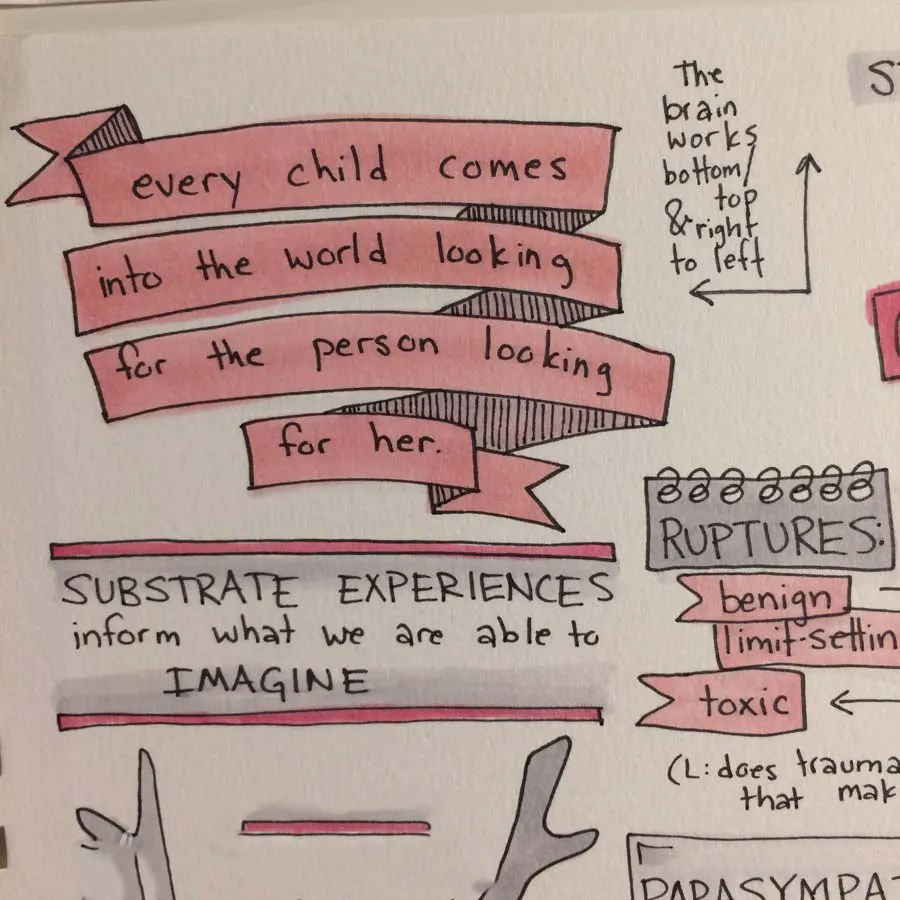 every child comes
into the world looking
for the person looking
for her.
The
brain
works
bottom/
top
& right
to left
SUBSTRATE EXPERIENCES
inform what we are able to
IMAGINE
RUPTURES:
benign
toxic
(L: does trauma
that